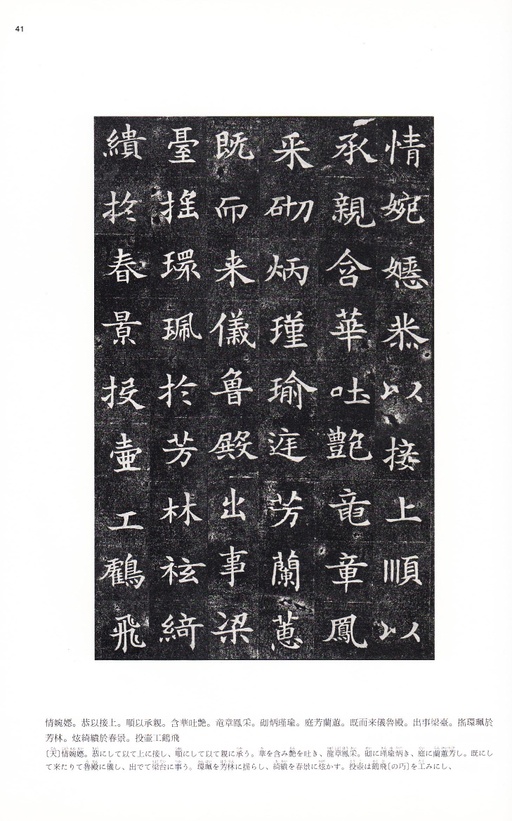 41
情婉嫕恭以接上順以
承親含華吐艶竜章鳳
采砌炳瑾瑜庭芳蘭蕙
既而来儀魯殿出事梁
臺揺環珮於芳林祛綺
繢於春景投壷工鶴飛
情婉嫕。恭以接上。順以承親。含華吐艶。竜章鳳采。砌炳瑾瑜。庭芳蘭蕙。既而來儀魯殿。出事梁臺。搖環珮於
芳林。炫綺繢於春景。投壺工鶴飛
[大]情婉嫕。恭にして以て上に接し、順にして以て親に承う。華を含み艶を吐き、竜章鳳采。砌に瑾瑜炳き、庭に蘭蕙芳し。既にし
て来たりて魯殿に儀し、出でて梁台に事う。環珮を芳林に揺らし、綺繢を春景に炫かす。投壺は鶴飛[の巧]を工みにし、